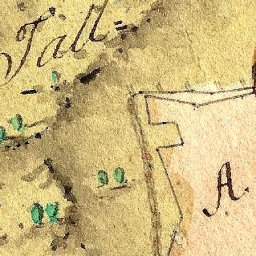 Tall-
A.